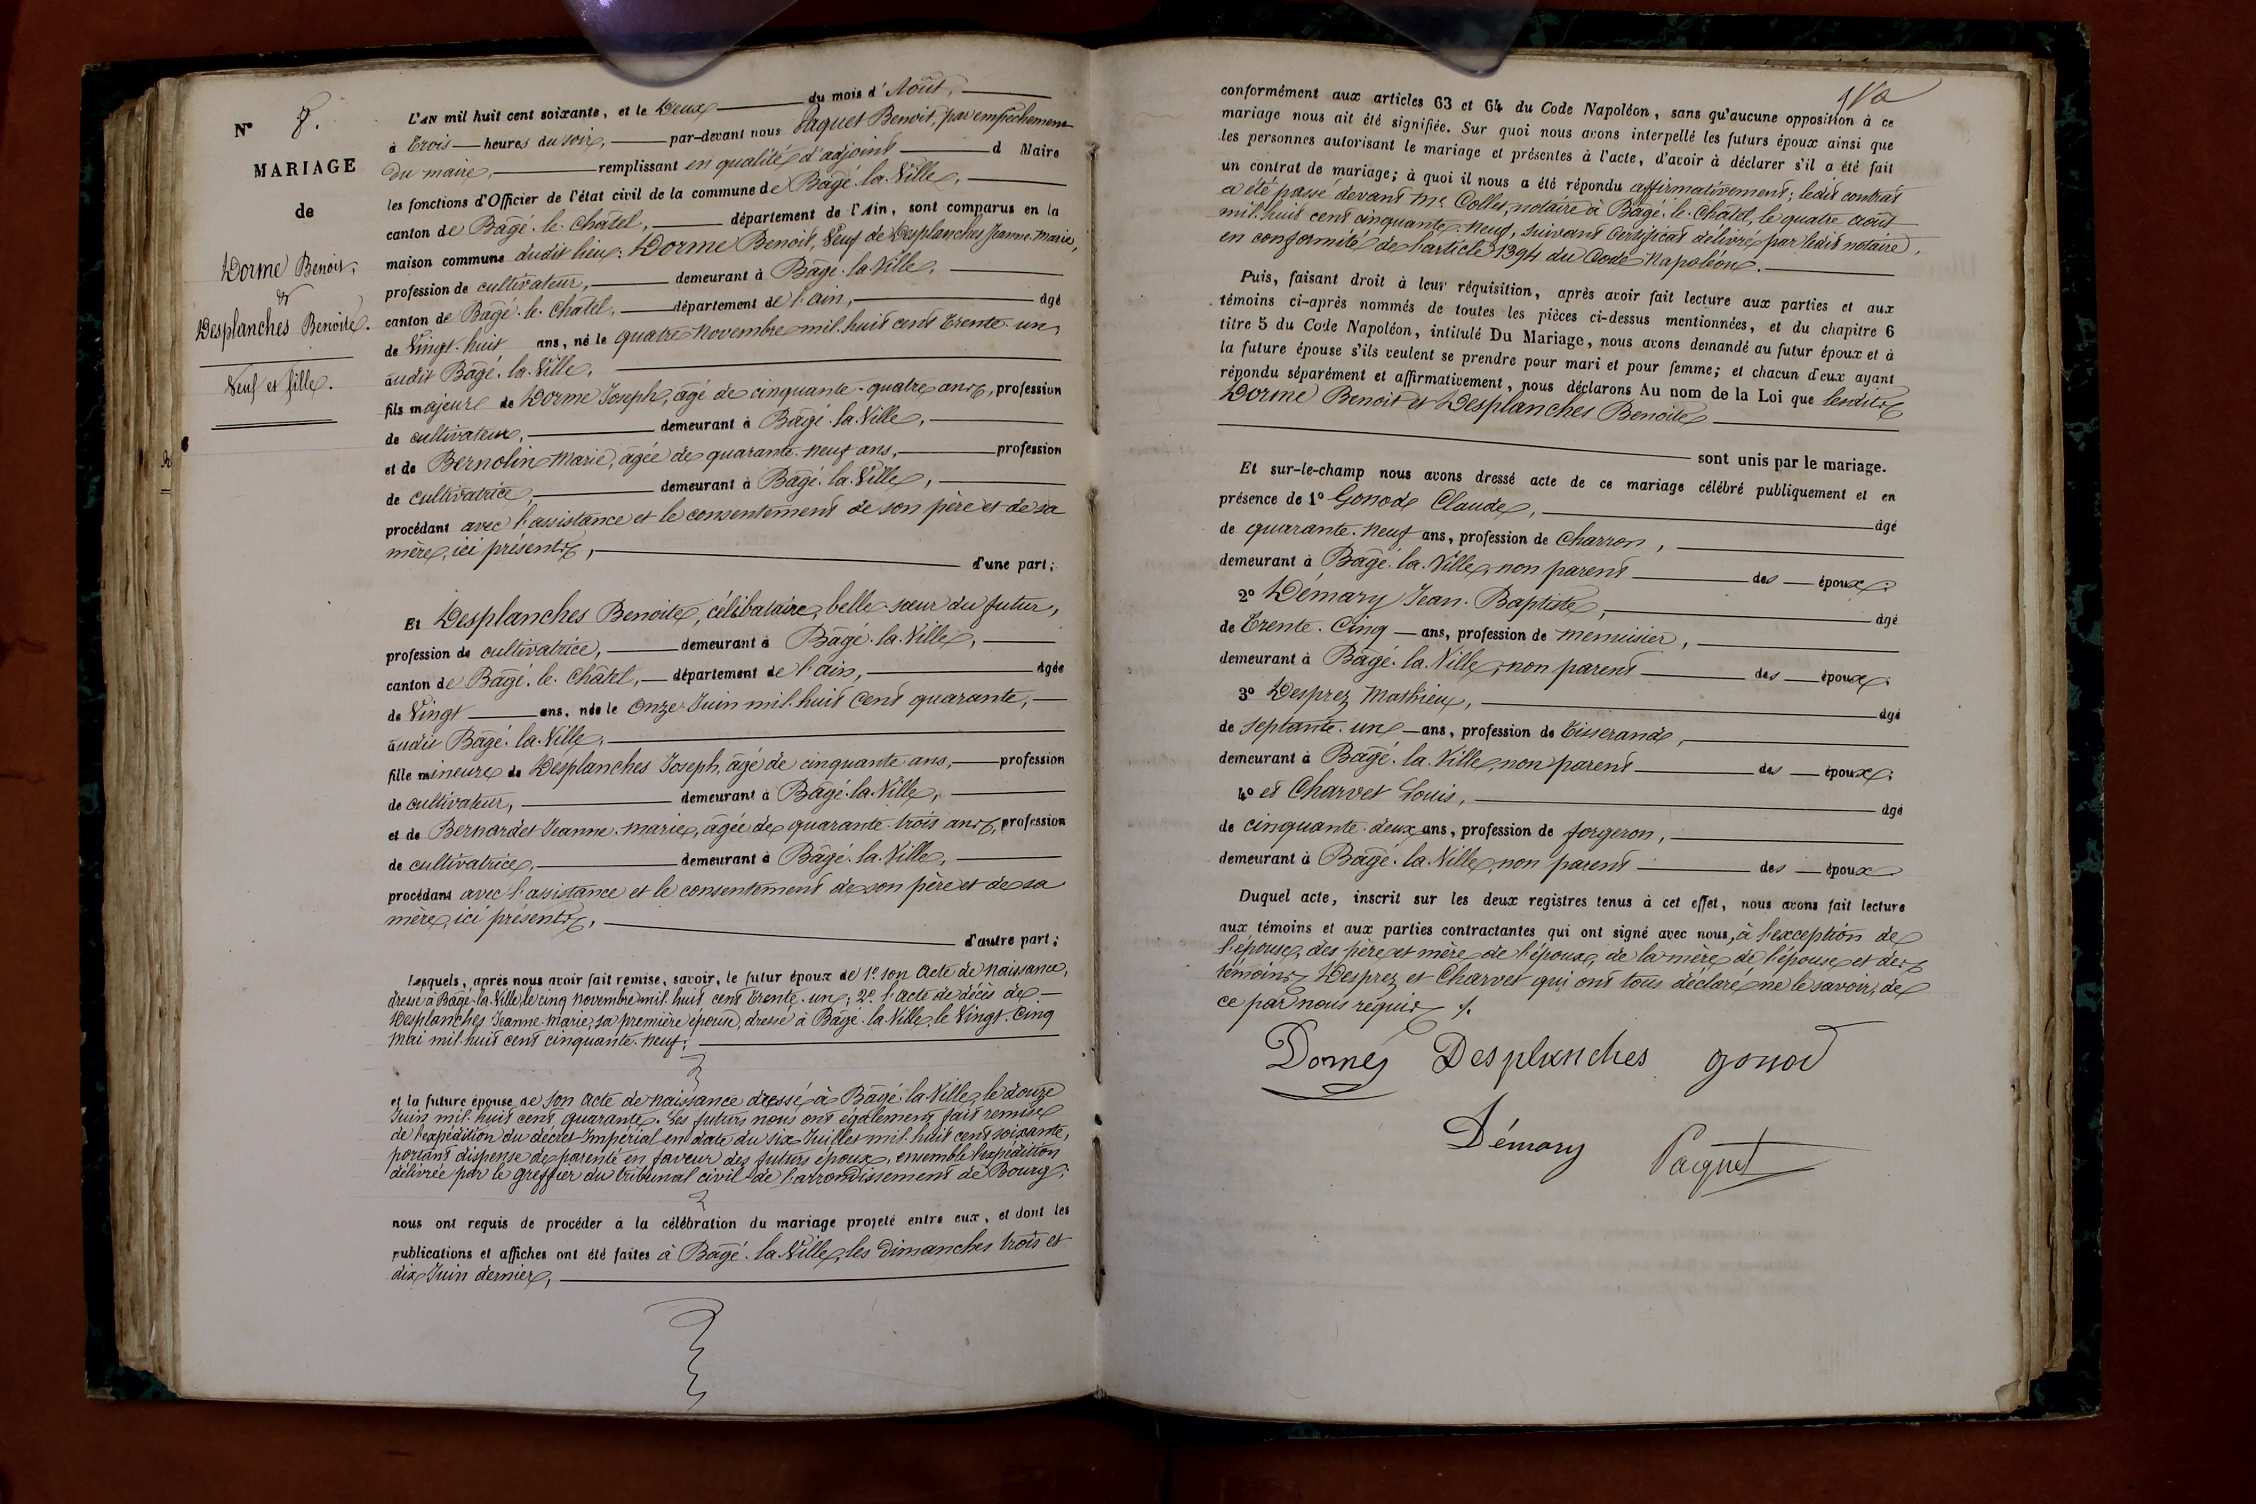 N° 8.
MARIAGE
de
Dorme Benoit,
&
Desplanches Benoite.
Veuf et fille.
L'AN mil huit cent soixante, et le Deux du mois d'Août,
à Trois heures du soir, par-devant nous Paquet Benoit, par empêchement
du maire, remplissant en qualité d'adjoint d Maire
les fonctions d'Officier de l'état civil de la commune de Bâgé-la-Ville,
canton de Bâgé-le-Châtel, département de l'Ain, sont comparus en la
maison commune dudit lieu: Dorme Benoit, Veuf de Desplanches Jeanne-Marie,
profession de cultivateur, demeurant à Bâgé-la-Ville,
canton de Bâgé-le-Châtel, département de l'ain, âgé
de Vingt-huit ans, né le quatre Novembre mil-huit cent Trente-un,
audit Bâgé-la-Ville,
fils majeur de Dorme Joseph, âgé de cinquante-quatre ans, profession
de cultivateur, demeurant à Bâgé-la-Ville,
et de Bernolin Marie, âgée de quarante-neuf ans, profession
de cultivatrice, demeurant à Bâgé-la-Ville,
procédant avec l'assistance et le consentement de son père et de sa
mère, ici présents,
d'une part;
Et Desplanches Benoite, célibataire, belle-sœur du futur,
profession de cultivatrice, demeurant à Bâgé-la-Ville,
canton de Bâgé-le-Châtel, département de l'ain, âgée
de Vingt ans, née le Onze Juin mil-huit cent quarante,
audit Bâgé-la-Ville,
fille mineure de Desplanches Joseph, âgé de cinquante ans, profession
de cultivateur, demeurant à Bâgé-la-Ville,
et de Bernardet Jeanne-Marie, âgée de quarante-trois ans, profession
de cultivatrice, demeurant à Bâgé-la-Ville,
procédant avec l'assistance et le consentement de son père et de sa
mère, ici présents,
d'autre part;
Lesquels, après nous avoir fait remise, savoir, le futur époux de 1° son Acte de Naissance,
dressé à Bâgé-la-Ville, le cinq Novembre mil-huit cent Trente-un; 2° l'acte de décès de
Desplanches Jeanne-Marie, sa première épouse, dressé à Bâgé-la-Ville, le Vingt-Cinq
Mai mil-huit cent cinquante-neuf;
et la future épouse de Son Acte de Naissance dressé à Bâgé-la-Ville, le douze
Juin mil-huit cent quarante. Les futurs nous ont également fait remise
de l'expédition du décret Impérial en date du six Juillet mil-huit cent soixante,
portant dispense de parenté en faveur des futurs époux, ensemble l'expédition
délivrée par le Greffier du tribunal civil de l'arrondissement de Bourg;
nous ont requis de procéder à la célébration du mariage projeté entre eux, et dont les
publications et affiches ont été faites à Bâgé-la-Ville, les Dimanches trois et
dix Juin dernier,
conformément aux articles 63 et 64 du Code Napoléon, sans qu'aucune opposition à ce
mariage nous ait été signifiée. Sur quoi nous avons interpellé les futurs époux ainsi que
les personnes autorisant le mariage et présentes à l'acte, d'avoir à déclarer s'il a été fait
un contrat de mariage; à quoi il nous a été répondu affirmativement; ledit contrat
a été passé devant Me Collet, notaire à Bâgé-le-Châtel, le quatre août
mil-huit cent cinquante-neuf, suivant Certificat délivré par ledit notaire,
en conformité de l'article 1394 du Code Napoléon.
Puis, faisant droit à leur réquisition, après avoir fait lecture aux parties et aux
témoins ci-après nommés de toutes les pièces ci-dessus mentionnées, et du chapitre 6
titre 5 du Code Napoléon, intitulé Du Mariage, nous avons demandé au futur époux et à
la future épouse s'ils veulent se prendre pour mari et pour femme; et chacun d'eux ayant
répondu séparément et affirmativement, nous déclarons Au nom de la Loi que lesdits
Dorme Benoit et Desplanches Benoite
sont unis par le mariage.
Et sur-le-champ nous avons dressé acte de ce mariage célébré publiquement et en
présence de 1° Gonod Claude, âgé
de quarante-neuf ans, profession de Charron,
demeurant à Bâgé-la-Ville, non parent des époux;
2° Démary Jean-Baptiste, âgé
de Trente-Cinq ans, profession de menuisier,
demeurant à Bâgé-la-Ville, non parent des époux;
3° Desprez Mathieu, âgé
de septante-un ans, profession de Tisserand,
demeurant à Bâgé-la-Ville, non parent des époux;
4° et Charvet Louis, âgé
de cinquante-deux ans, profession de forgeron,
demeurant à Bâgé-la-Ville, non parent des époux
Duquel acte, inscrit sur les deux registres tenus à cet effet, nous avons fait lecture
aux témoins et aux parties contractantes qui ont signé avec nous, à l'exception de
l'épouse, des père et mère de l'époux, de la mère de l'épouse et des
témoins Desprez et Charvet qui ont tous déclaré ne le savoir, de
ce par nous requis.
Dorme Desplanches gonod
Démary Paquet